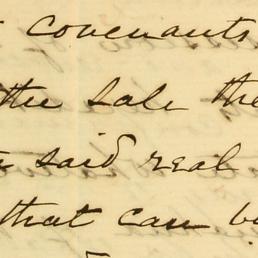 covenants
the sale the
said real
that can b